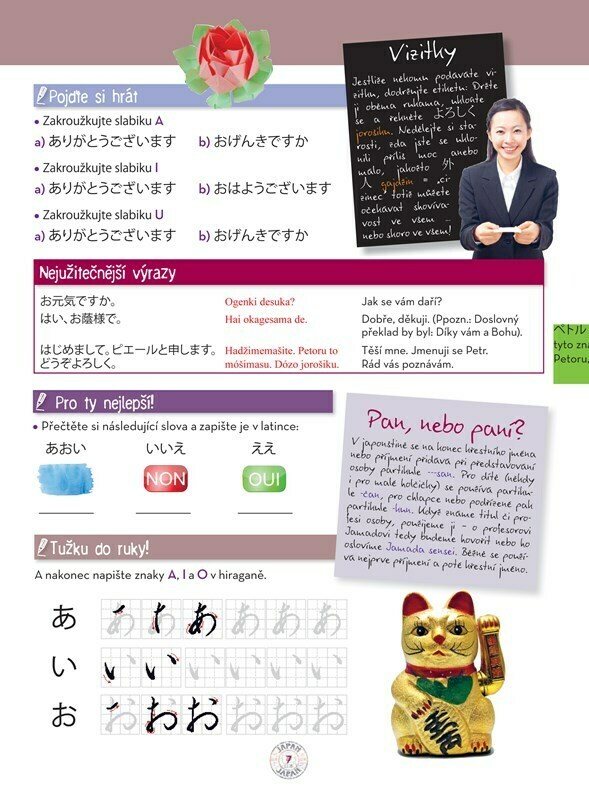 Vizitky
Jestliže někomu podáváte vi-
zitku, dodržujte etiketu: Držte
ji oběma rukama, ukloňte
se a řekněte よろしく
jorošiku. Nedělejte si sta-
rosti, zda jste se uklo-
nili příliš moc anebo
málo, jakožto 外
人 gajdžin = „ci-
zinec“ totiž můžete
očekávat shovíva-
vost ve všem –
nebo skoro ve všem!
Pojďte si hrát
• Zakroužkujte slabiku A
a) ありがとうございます b) おげんきですか
Zakroužkujte slabiku I
a) ありがとうございます b) おはようございます
• Zakroužkujte slabiku U
a) ありがとうございます b) おげんきですか
Nejužitečnější výrazy
お元気ですか。 Ogenki desuka? Jak se vám daří?
はい、お蔭様で。 Hai okagesama de. Dobře, děkuji. (Ppozn.: Doslovný
překlad by byl: Díky vám a Bohu).
はじめまして。ピエールと申します。 Hadžimemašite. Petoru to Těší mne. Jmenuji se Petr.
どうぞよろしく。 móšimasu. Dózo jorošiku. Rád vás poznávám.
ペトル
tyto zna
Petoru,
Pro ty nejlepší!
• Přečtěte si následující slova a zapište je v latince:
あおい いいえ ええ
NON OUI
Pan, nebo paní?
V japonštině se na konec křestního jména
nebo příjmení přidává při představování
osoby partikule ---san. Pro dítě (někdy
i pro malé holčičky) se používá partiku-
le -čan, pro chlapce nebo podřízené pak
partikule -kun. Když známe titul či pro-
fesi osoby, použijeme ji – o profesorovi
Jamadovi tedy budeme hovořit nebo ho
oslovíme Jamada sensei. Běžně se použí-
vá nejprve příjmení a poté křestní jméno.
Tužku do ruky!
A nakonec napište znaky A, I a O v hiraganě.
あ あ あ あ あ あ
い い い い い い い
お お お お お お お
JAPAN
7
JAPAN